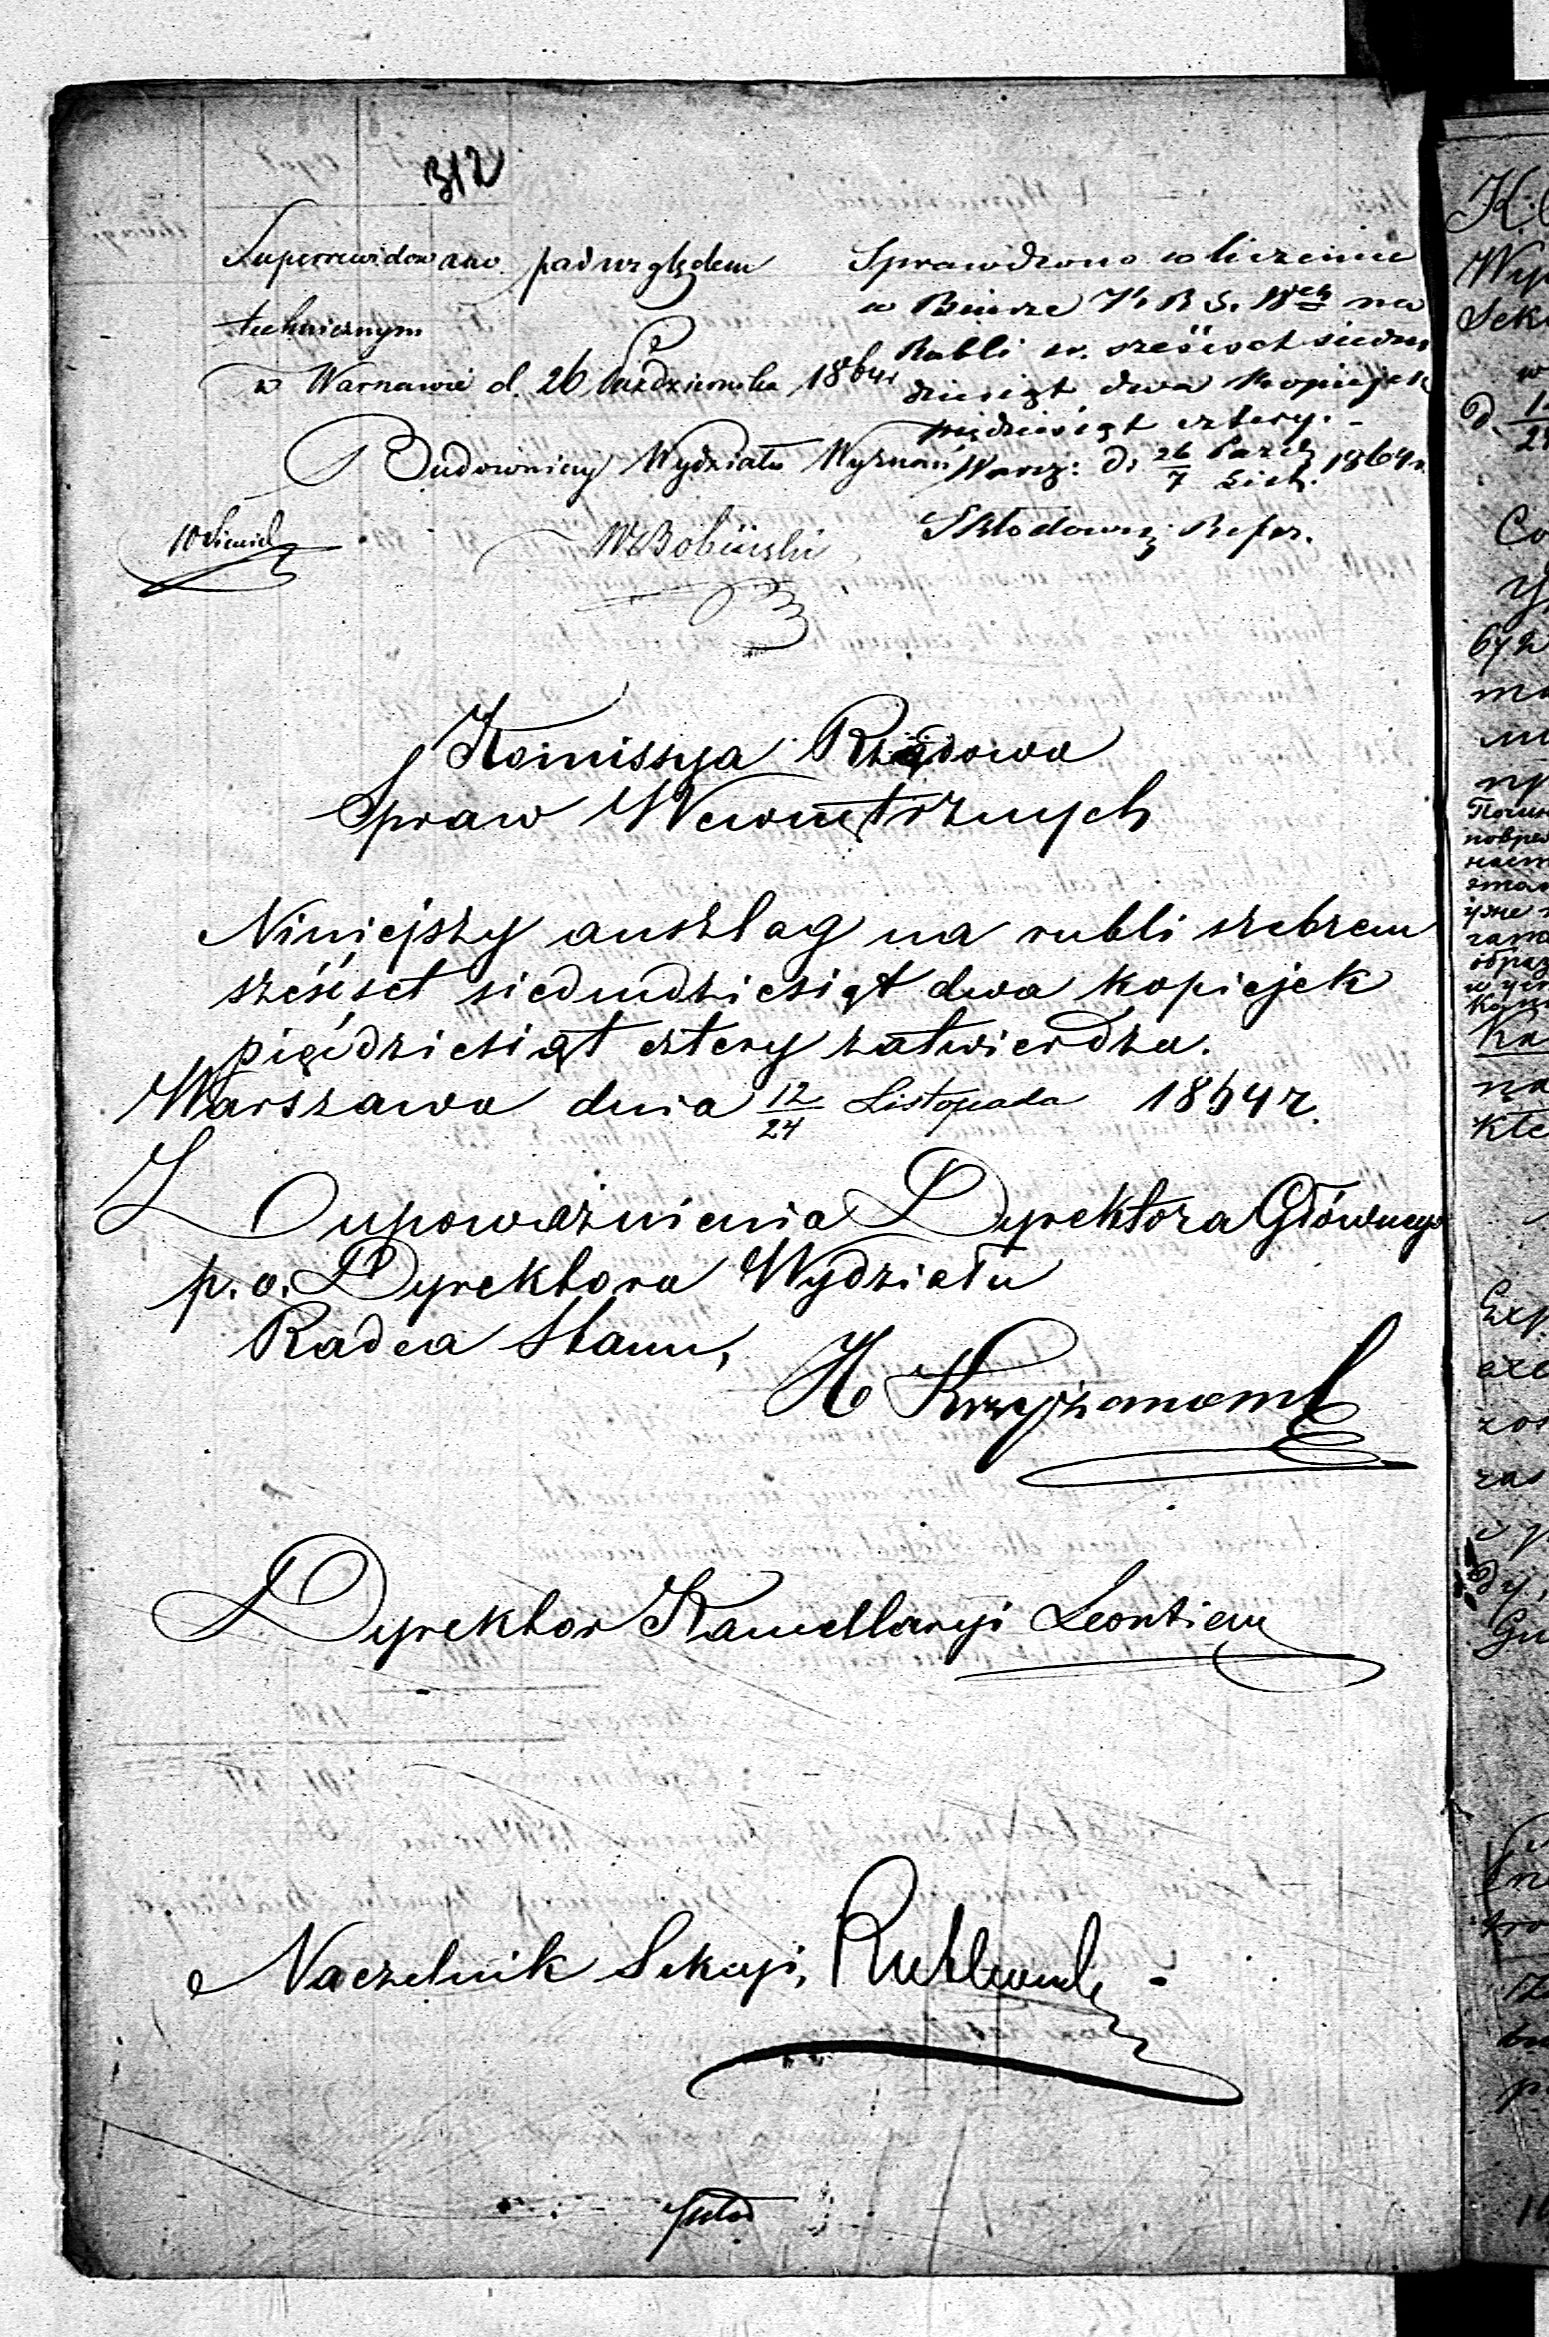 312
Superrewidowano pod względem
technicznym
w Warszawie d. 26 Października 1864 r
Budowniczy Wydziału Wyznań
WBobiński
Sprawdzono w liczeniu
w Biurze K. R. S. Wch na
Rubli sr. sześćset siedm
dziesiąt dwa kopiejek
pięćdziesiąt cztery. -
Warsz: d. 26/7 Paźdz/List. 1864 r.
Skłodowski Refer.
Kommissya Rządowa
Spraw Wewnętrznych
Niniejszy anszlag na rubli srebrem
sześćset siedmdziesiąt dwa kopiejek
pięćdziesiąt cztery zatwierdza.
Warszawa dnia 12/24 Listopada 1864 r.
Z upoważnienia Dyrektora Głównego
p. o. Dyrektora Wydziału
Radca Stanu,
H Krzyżanowski
Dyrektor Kancellaryi Leontiew
Naczelnik Sekcyi,